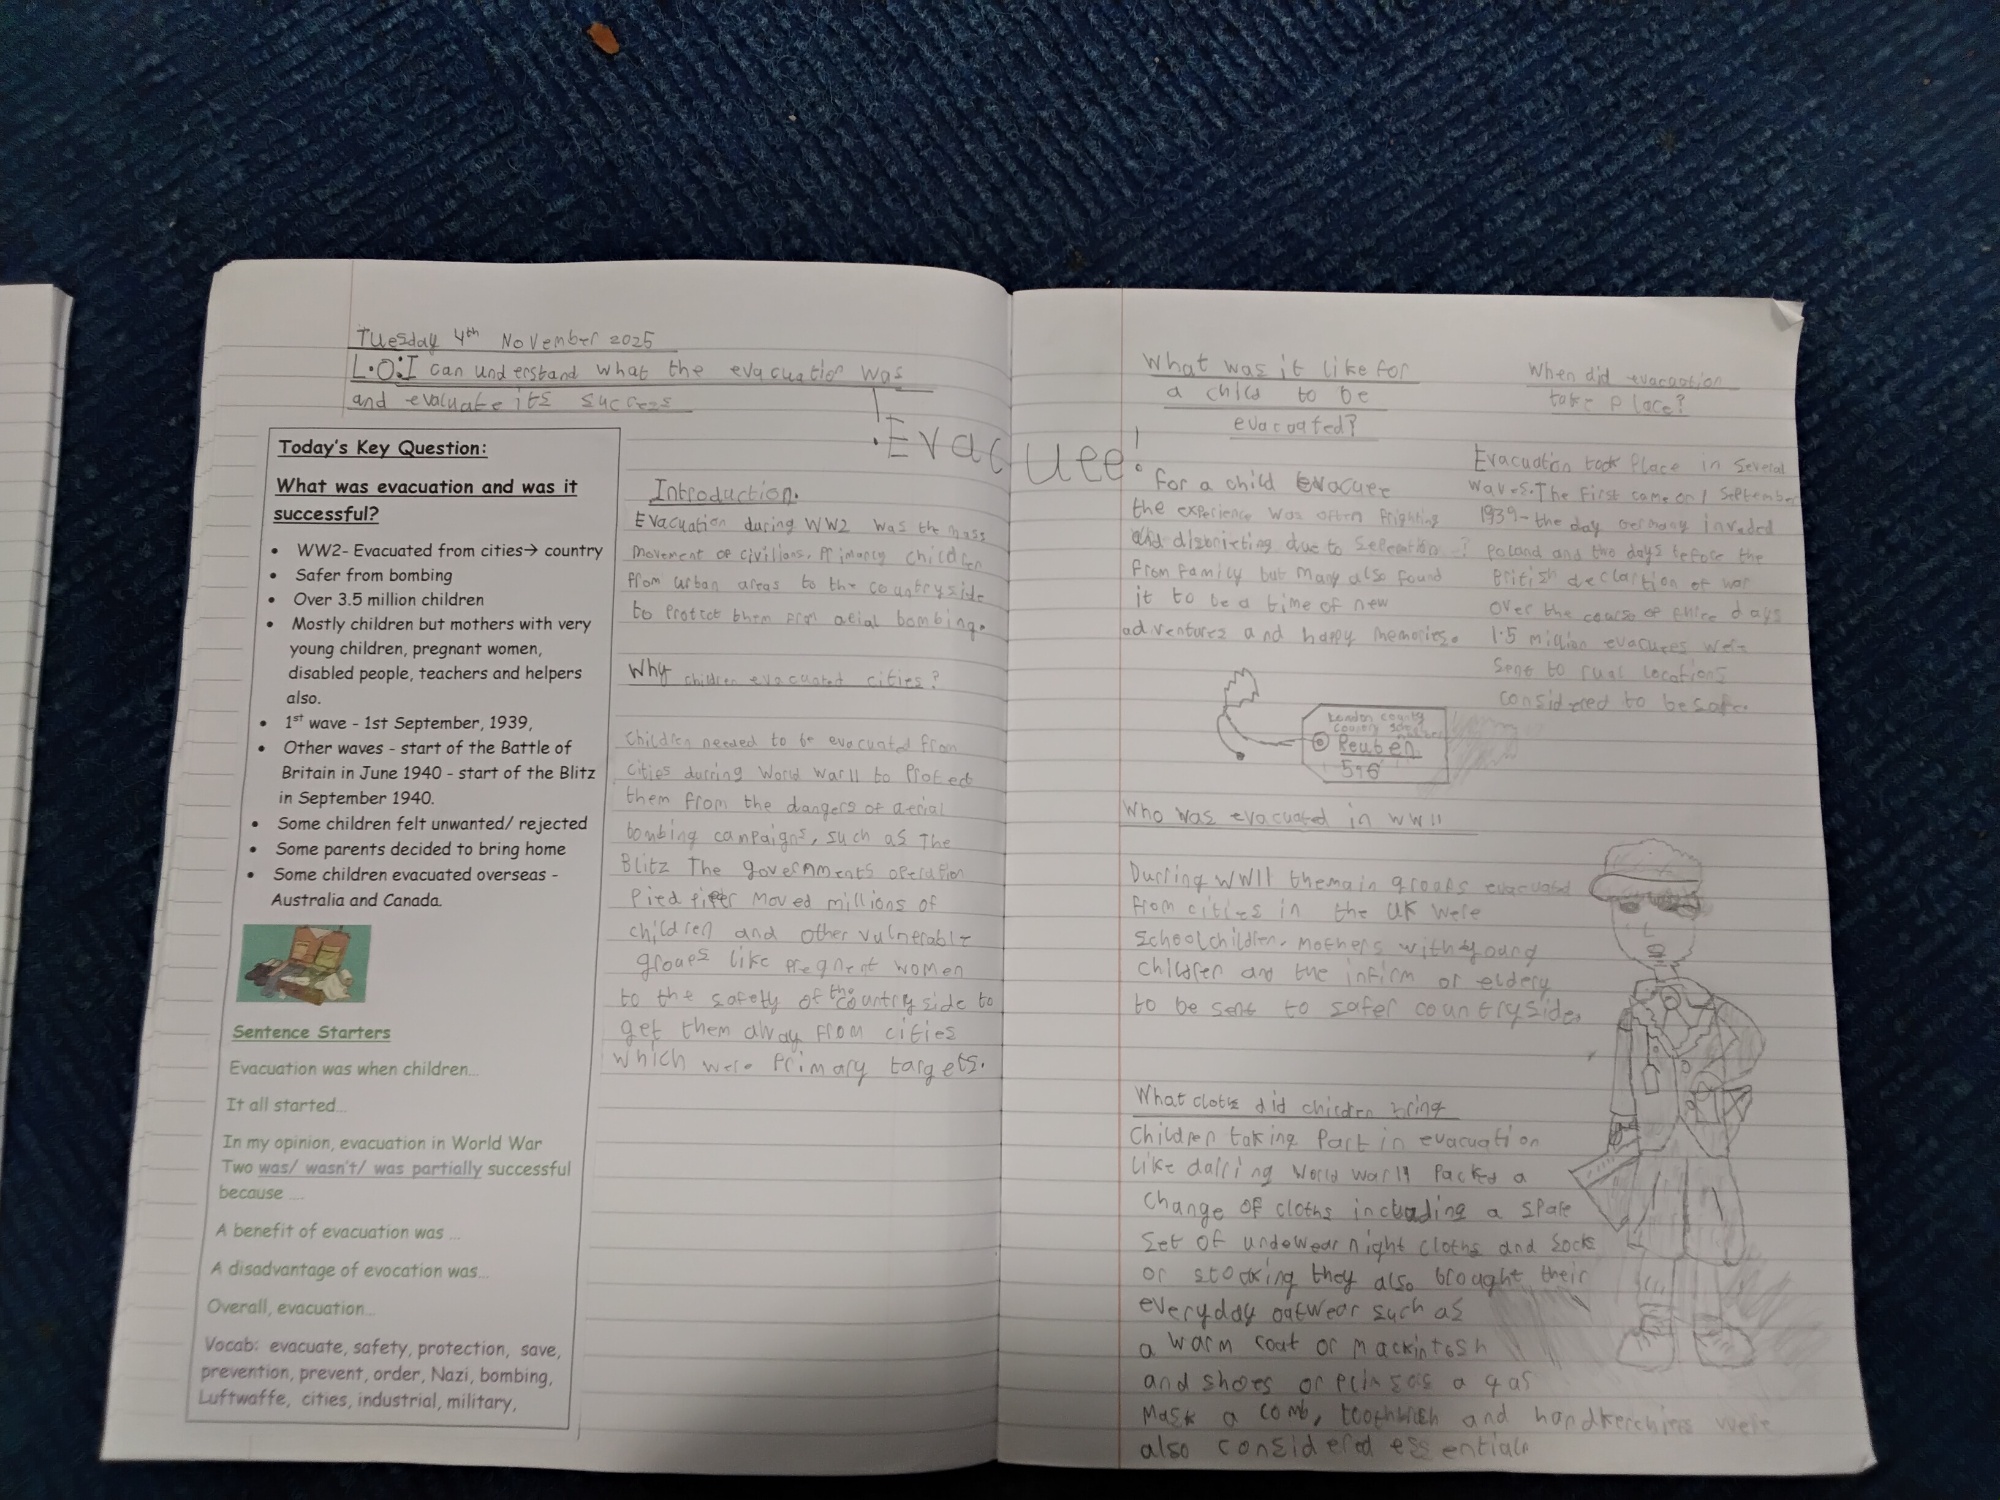 Tuesday 4th November 2025
L.O: I can understand what the evacuation was
and evaluate its success
! Evacuee!
Today's Key Question:
What was evacuation and was it
successful?
• WW2- Evacuated from cities→ country
• Safer from bombing
• Over 3.5 million children
• Mostly children but mothers with very
young children, pregnant women,
disabled people, teachers and helpers
also.
• 1st wave - 1st September, 1939,
• Other waves - start of the Battle of
Britain in June 1940 - start of the Blitz
in September 1940.
• Some children felt unwanted/ rejected
• Some parents decided to bring home
• Some children evacuated overseas -
Australia and Canada.
Sentence Starters
Evacuation was when children...
It all started...
In my opinion, evacuation in World War
Two was/ wasn't/ was partially successful
because ....
A benefit of evacuation was ...
A disadvantage of evocation was...
Overall, evacuation...
Vocab: evacuate, safety, protection, save,
prevention, prevent, order, Nazi, bombing,
Luftwaffe, cities, industrial, military,
Introduction.
Evacuation during WW2 was the mass
movement of civilians. Primarly children
from urban areas to the countryside
to Protect them from aeial bombing.
Why children evacuated cities?
Children needed to be evacuated from
cities durring World War II to Protect
them from the dangers of aerial
bombing campaigns, such as The
Blitz The governments operation
Pied piper moved millions of
children and other vulnerable
groups like pregnent women
to the safety of the countryside to
get them alway from cities
which were Primary targets.
What was it like for
a child to be
evacuated?
for a child evacuee
the experience was often frighting
and disorieting due to seperation
from family but many also found
it to be a time of new
adventures and happy memories.
When did evacaation
take place?
Evacuation took Place in several
waves. The first came on 1 September
1939- the day Germany invaded
Poland and two days before the
British declartion of war
over the course of three days
1.5 million evacuees were
sent to rual locations
considered to be safe.
London county
Reuben
596
Who was evacuated in WWII
Durring WWII the main groups evacuated
from cities in the UK were
schoolchildren. mothers with young
children and the infirm or eldery
to be sent to safer countryside.
What cloths did children bring
Children taking Part in evacuation
like dalring World war 11 Packed a
change of cloths including a spare
set of undewear night cloths and socks
or stocking they also brought their
everyday outwear such as
a warm coat or mackintosh
and shoes or plimsas a gas
mask a comb, toothbrush and handkerchins were
also considered essentials